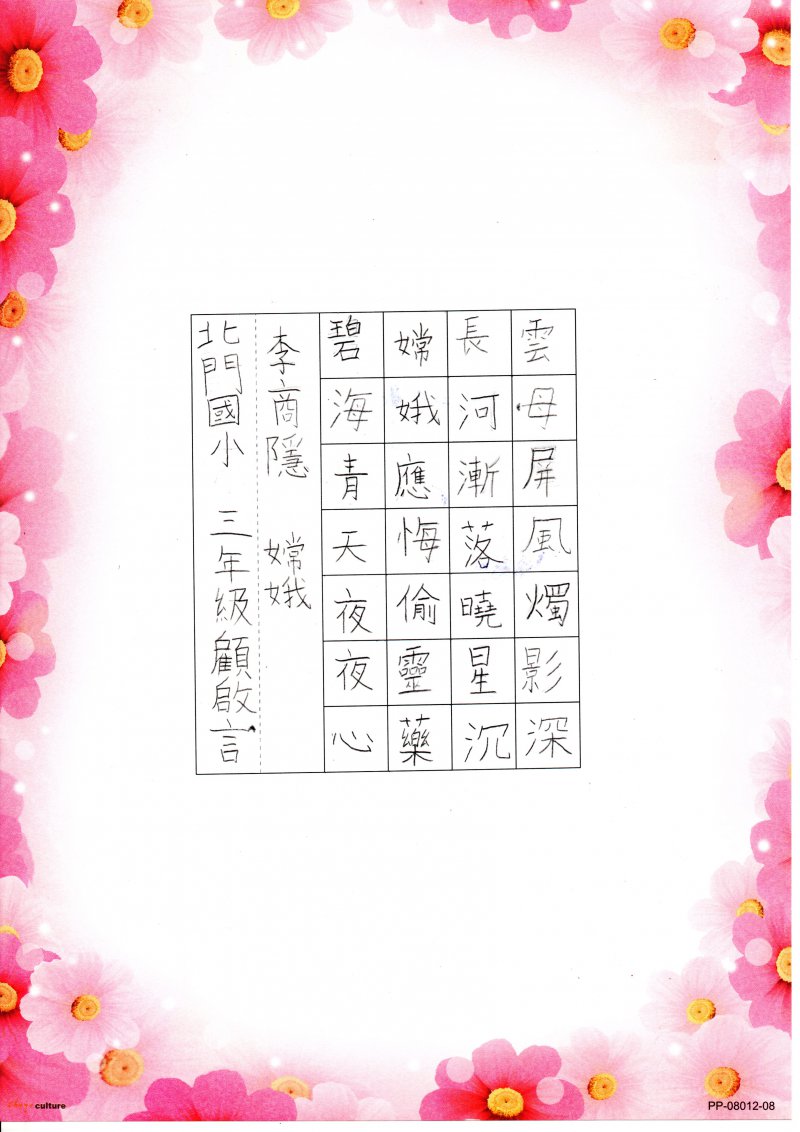 雲母屏風燭影深
長河漸落曉星沉
嫦娥應悔偷靈藥
碧海青天夜夜心
李商隱 嫦娥
北門國小 三年級顧啟言
culture
PP-08012-08